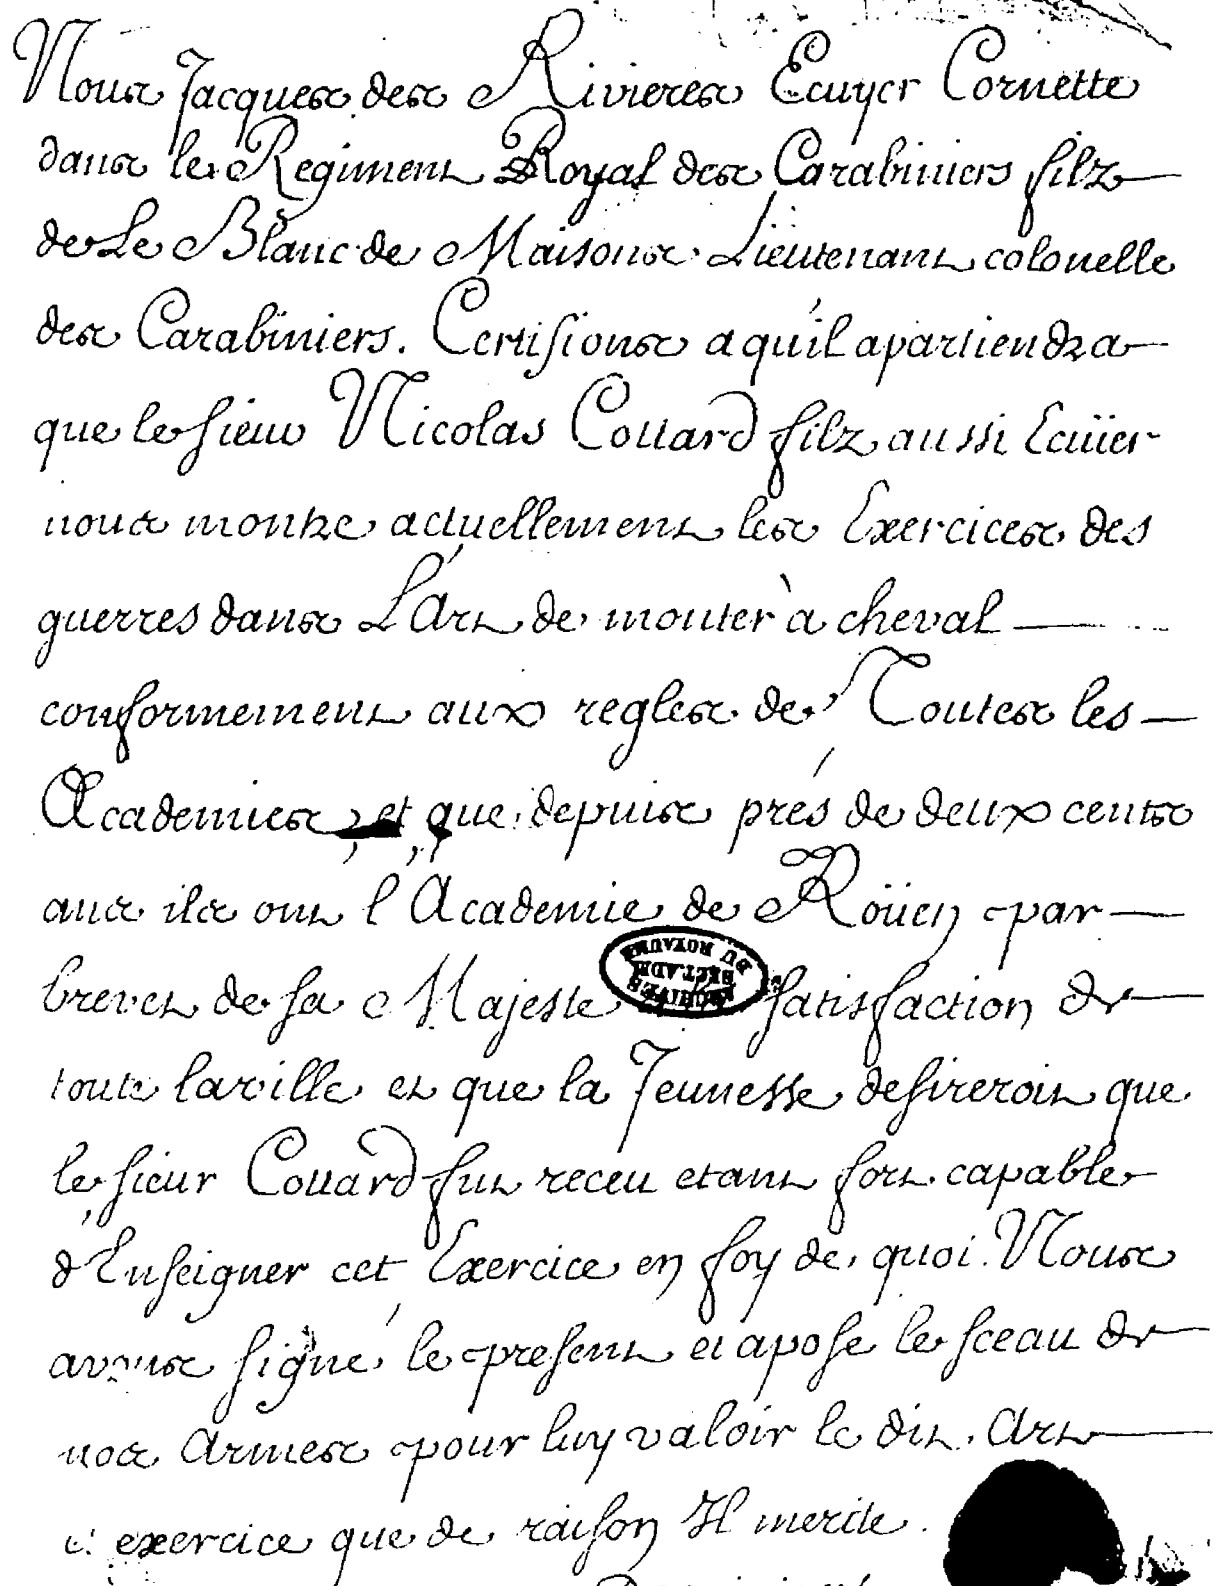 Nous Jacques des Rivieres Ecuyer Cornette
dans le Regiment Royal des Carabiniers filz
de Le Blanc de Maisons Lieutenant colonelle
des Carabiniers. Certifions a qu'il apartiendra
que le sieur Nicolas Couard filz aussi Ecüier
nous montre actuellement les Exercices des
guerres dans L'Art de monter à cheval
conformement aux regles de Toutes les
Academies, et que depuis prés de deux cents
ans ils ont l'Academie de Roüen par
brevet de sa Majeste satisfaction de
toute la ville et que la Jeunesse desireroit que
le sieur Couard fut receu etant fort capable
d'Enseigner cet Exercice en foy de quoi Nous
avons signé le present et apose le sceau de
nos Armes pour luy valoir le dit Art
exercice que de raison Il merite.
ARCHIVES
SECT. ADM
DU ROYAUME